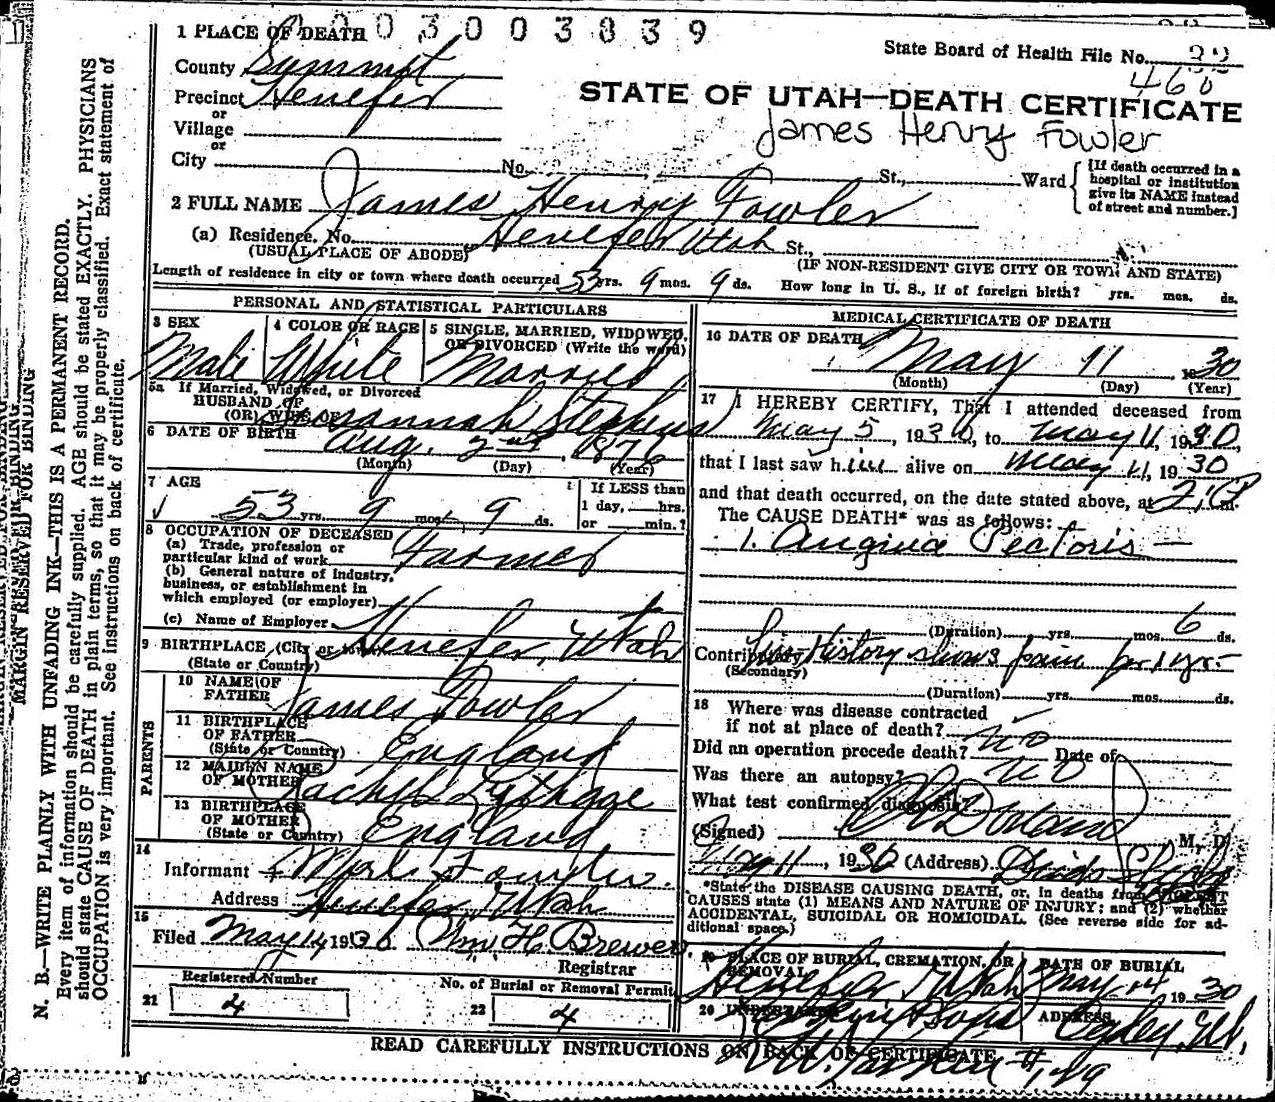 1 PLACE OF DEATH
0 0 3 0 0 3 8 3 9
State Board of Health File No. 32
468
County Summit
Precinct Henefer
or
Village
or
City No. St., Ward {[If death occurred in a hospital or institution give its NAME instead of street and number.]
STATE OF UTAH—DEATH CERTIFICATE
James Henry Fowler
2 FULL NAME James Henry Fowler
(a) Residence. No. Henefer Utah St.,
(USUAL PLACE OF ABODE) (IF NON-RESIDENT GIVE CITY OR TOWN AND STATE)
Length of residence in city or town where death occurred 53 yrs. 9 mos. 9 ds. How long in U. S., if of foreign birth? yrs. mos. ds.
PERSONAL AND STATISTICAL PARTICULARS
3 SEX
Male
4 COLOR OR RACE
White
5 SINGLE, MARRIED, WIDOWED, OR DIVORCED (Write the word)
Married
5a If Married, Widowed, or Divorced
HUSBAND OF
(OR) WIFE OF Susannah Stephens
6 DATE OF BIRTH Aug. 2nd 1876
(Month) (Day) (Year)
7 AGE
53 yrs. 9 mos. 9 ds.
If LESS than
1 day, hrs.
or min.?
8 OCCUPATION OF DECEASED
(a) Trade, profession or
particular kind of work Farmer
(b) General nature of industry,
business, or establishment in
which employed (or employer)
(c) Name of Employer
9 BIRTHPLACE (City or town) Henefer, Utah
(State or Country)
PARENTS
10 NAME OF
FATHER James Fowler
11 BIRTHPLACE
OF FATHER
(State or Country) England
12 MAIDEN NAME
OF MOTHER Rachel Lythgoe
13 BIRTHPLACE
OF MOTHER
(State or Country) England
14
Informant Merle Fowler.
Address Henefer, Utah
15
Filed May 14 1930 Wm H Brewer
Registrar
Registered Number
21 4
No. of Burial or Removal Permit
22 4
MEDICAL CERTIFICATE OF DEATH
16 DATE OF DEATH
May 11 1930
(Month) (Day) (Year)
17 I HEREBY CERTIFY, That I attended deceased from
May 5, 1930, to May 11, 1930,
that I last saw him alive on May 11, 1930
and that death occurred, on the date stated above, at
The CAUSE DEATH* was as follows:
1. Angina Pectoris —
(Duration) yrs. mos. 6 ds.
Contributory History shows pain for 1 yr.
(Secondary)
(Duration) yrs. mos. ds.
18 Where was disease contracted
if not at place of death?
Did an operation precede death? no Date of
Was there an autopsy? no
What test confirmed diagnosis?
(Signed) M, D.
May 11, 1930 (Address)
*State the DISEASE CAUSING DEATH, or, in deaths from VIOLENT
CAUSES state (1) MEANS AND NATURE OF INJURY; and (2) whether
ACCIDENTAL, SUICIDAL OR HOMICIDAL. (See reverse side for ad-
ditional space.)
19 PLACE OF BURIAL, CREMATION, OR
REMOVAL
Henefer, Utah
DATE OF BURIAL
May 14 1930
20 UNDERTAKER
& Sons
ADDRESS
Ogden, Ut.
READ CAREFULLY INSTRUCTIONS ON BACK OF CERTIFICATE
MARGIN RESERVED FOR BINDING
N. B.—WRITE PLAINLY WITH UNFADING INK—THIS IS A PERMANENT RECORD.
Every item of information should be carefully supplied. AGE should be stated EXACTLY. PHYSICIANS
should state CAUSE OF DEATH in plain terms, so that it may be properly classified. Exact statement of
OCCUPATION is very important. See instructions on back of certificate.